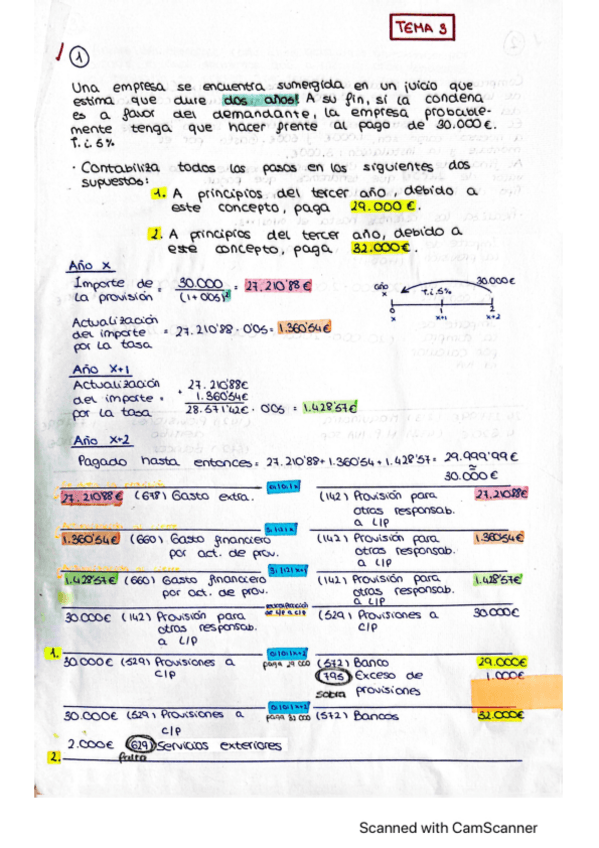 TEMA 9
1
Una empresa se encuentra sumergida en un juicio que
estima que dure dos años! A su fin, si la condena
es a favor del demandante, la empresa probable-
mente tenga que hacer frente al pago de 30.000€.
T.i.5%
· Contabiliza todos los pasos en los siguientes dos
supuestos:
1. A principios del tercer año, debido a
este concepto, paga 29.000€.
2. A principios del tercer año, debido a
este concepto, paga 32.000€.
Año x
Importe de la provisión = 30.000 / (1+005)² = 27.210'88€
año x
T.i.5%
30.000€
0 1 2
x x+1 x+2
Actualización
del importe = 27.210'88 · 0'05 = 1.360'54€
por la tasa
Año x+1
Actualización · 27.210'88€
del importe = 1.360'54€
por la tasa 28.571'42€ · 0'05 = 1.428'57€
Año x+2
Pagado hasta entonces = 27.210'88 + 1.360'54 + 1.428'57 = 29.999'99€
≈
30.000€
27.210'88€ (678) Gasto extra. (142) Provisión para 27.210'88€
otras responsab.
a L|P
1.360'54€ (660) Gasto financiero (142) Provisión para 1.360'54€
por act. de prov. otras responsab.
a L|P
1.428'57€ (660) Gasto financiero (142) Provisión para 1.428'57€
por act. de prov. otras responsab.
a L|P
30.000€ (142) Provisión para (529) Provisiones a 30.000€
otras responsab. C|P
a L|P
1.
30.000€ (529) Provisiones a paga 29 000 (572) Banco 29.000€
C|P (795) Exceso de 1.000€
sobra provisiones
30.000€ (529) Provisiones a paga 32 000 (572) Bancos 32.000€
C|P
2.000€ (629) Servicios exteriores
2. falta
Scanned with CamScanner